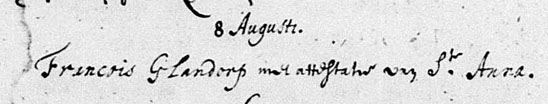 8 Augusti.
Francois Glandorp met attestatie van Ste Anna.